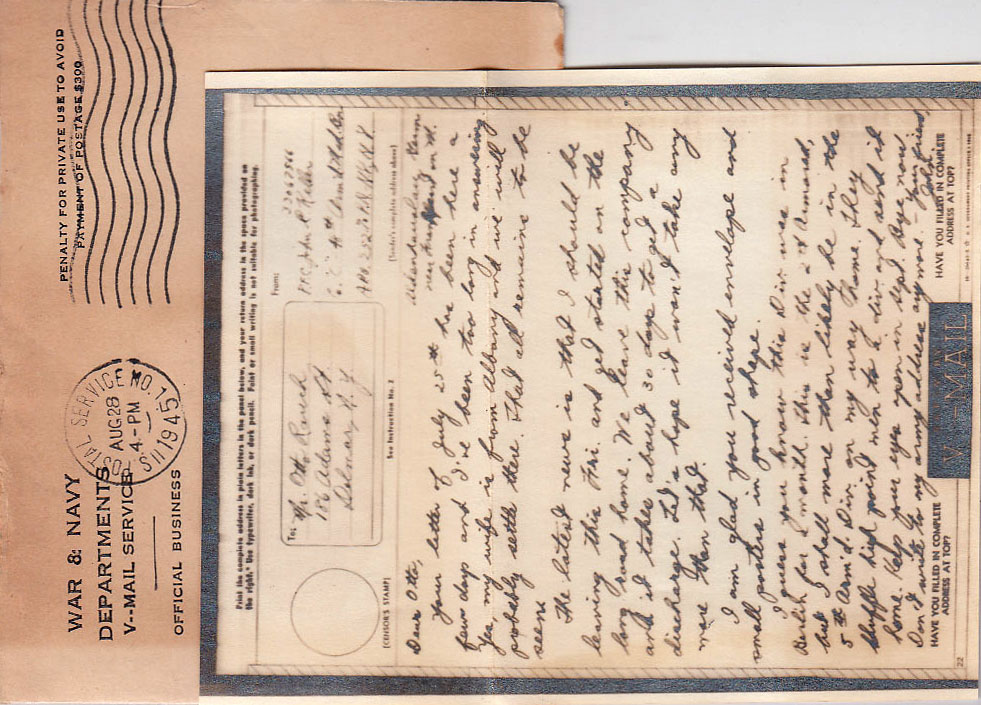 WAR & NAVY
DEPARTMENTS
V--MAIL SERVICE
OFFICIAL BUSINESS
POSTAL SERVICE NO. 1
AUG 28
4-PM
1945
PENALTY FOR PRIVATE USE TO AVOID
PAYMENT OF POSTAGE $300
Print the complete address in plain letters in the panel below, and your return address in the space provided on
the right. Use typewriter, dark ink, or dark pencil. Faint or small writing is not suitable for photographing.
To:
Mr. Otto Rauch
186 Adams St.
Delmar, N.Y.
From:
33062566
PFC. John P. Keller
"C" 4th Armd
[CENSOR'S STAMP]
See Instruction No. 2
[Sender's complete address above]
Dear Otto,
Your letter of July 25th has been here a
few days and I've been too long in answering
Yes, my wife is from Albany and we will
probably settle there. That all remains to be
seen.
The latest news is that I should be
leaving this Fri. and get started on the
long road home. We leave this company
and it takes about 30 days to get a
discharge. Let's hope it won't take any
more than that.
I am glad you received envelope and
small posters in good shape.
I guess you know this Div was in
Berlin for 2 months. This is the 2nd Armored,
but I shall more than likely be in the
5th Arm'd. Div. on my way home. They
shuffle high point men to a div and send it
home. Keep your eyes open in Sept. Bye now
Don't write to my army address anymore. - Your friend,
John
HAVE YOU FILLED IN COMPLETE
ADDRESS AT TOP?
V - MAIL
HAVE YOU FILLED IN COMPLETE
ADDRESS AT TOP?
22